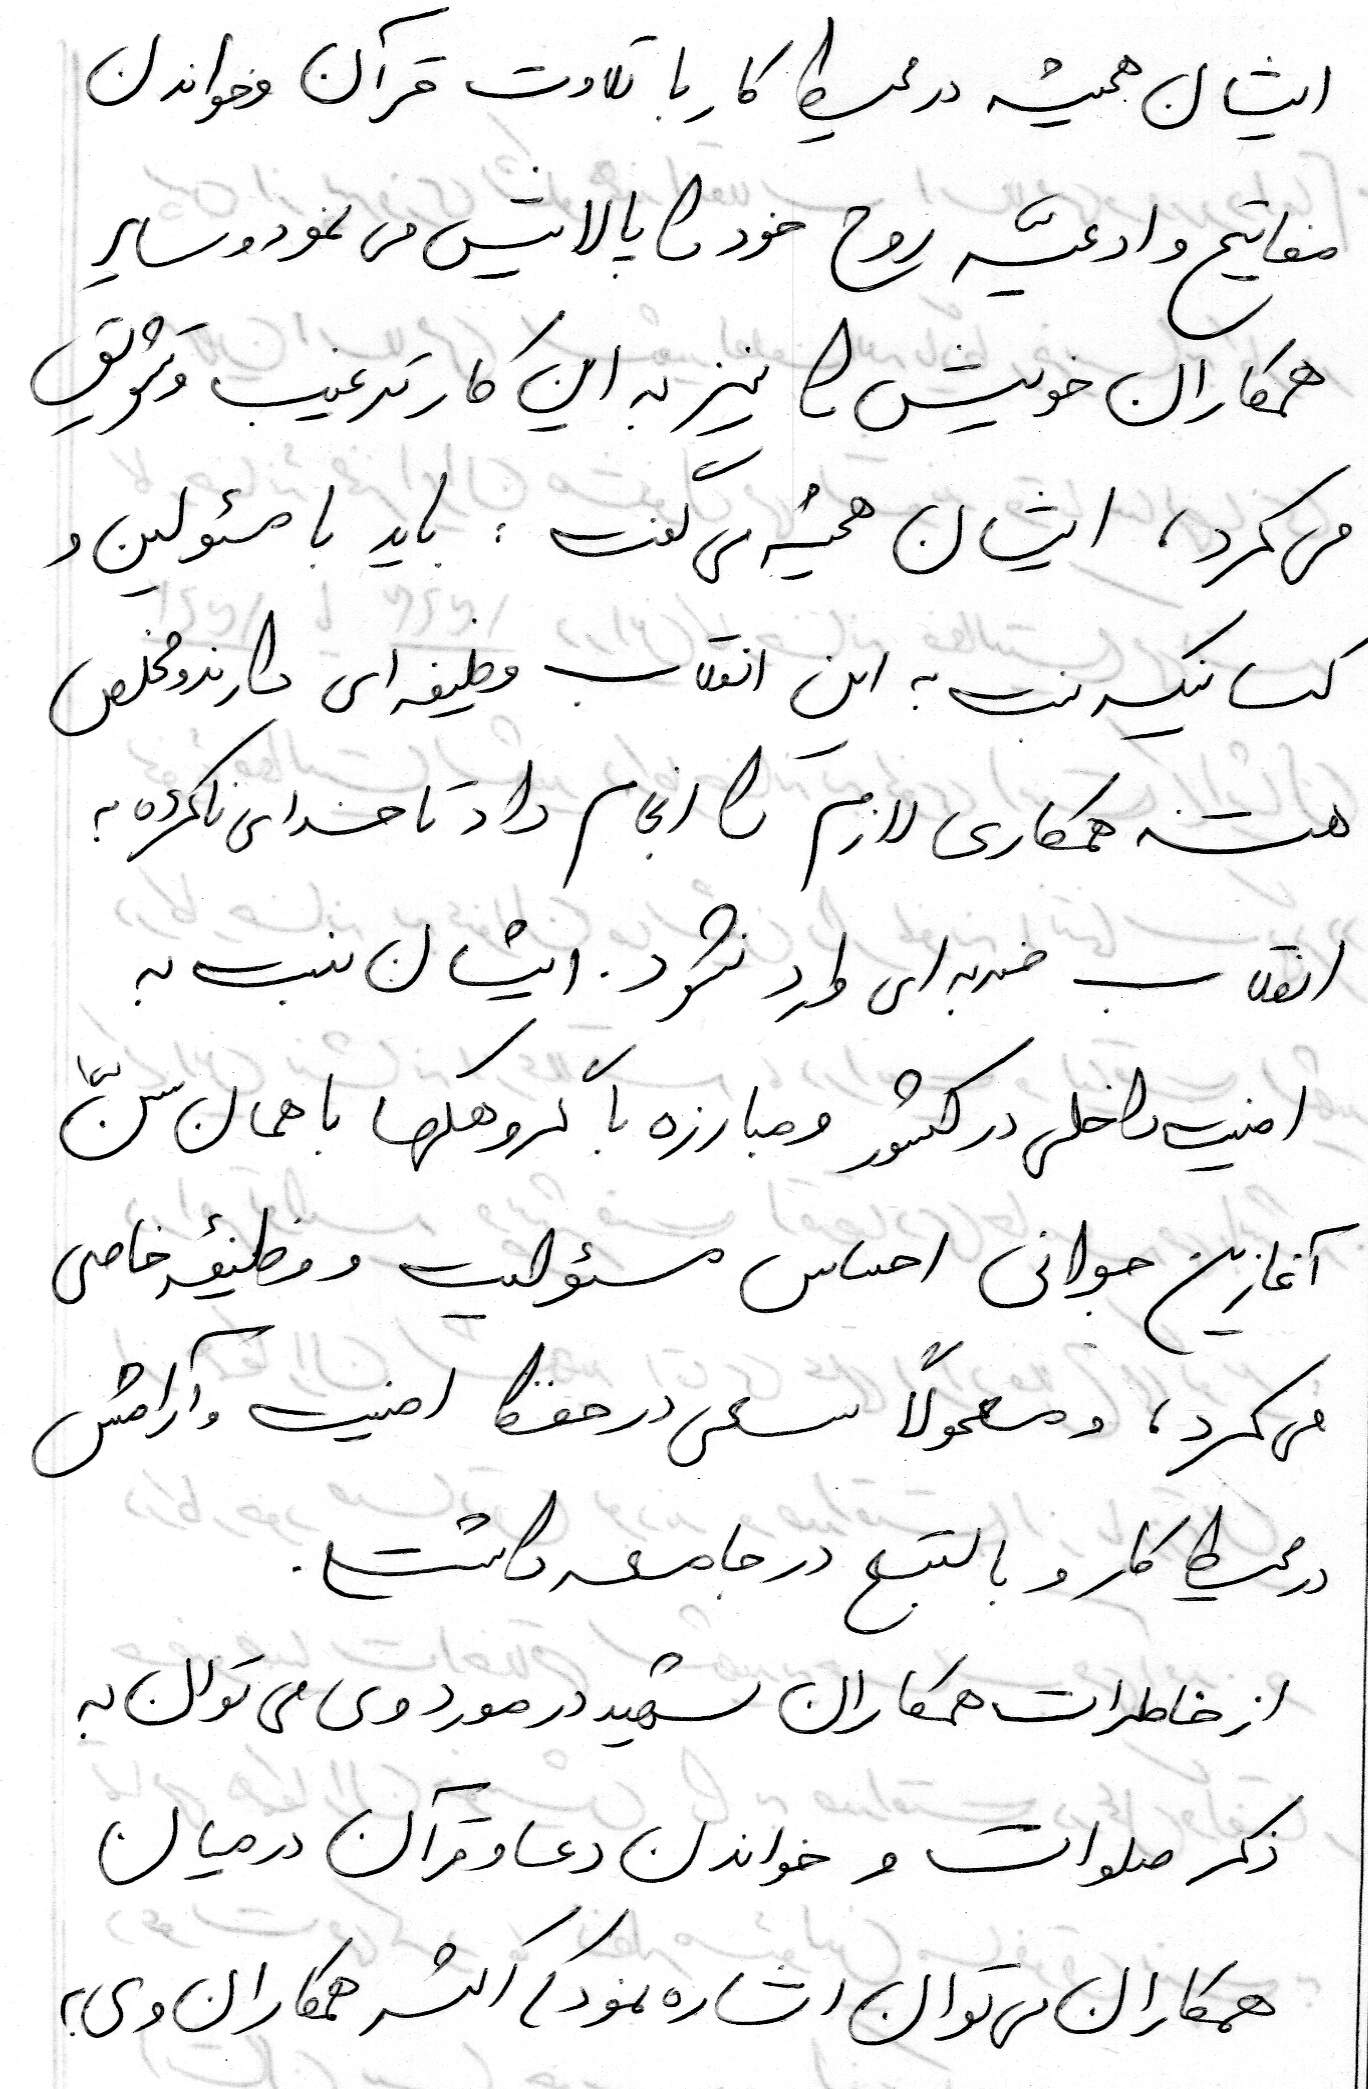 ایشان همیشه در محیط کار با تلاوت قرآن و خواندن
مفاتیح و ادعیّه روح خود را پالایش می نمود و سایر
همکاران خویش را نیز به این کار ترغیب و تشویق
می کرد، ایشان همیشه می گفت : باید با مسئولین و
کسانیکه نسبت به این انقلاب وظیفه ای دارند و مخلص
هستند همکاری لازم را انجام داد تا خدای ناکرده به
انقلاب ضربه ای وارد نشود. ایشان نسبت به
امنیت داخلی در کشور و مبارزه با گروهکها با همان سنّ
آغازین جوانی احساس مسئولیت و وظیفهٔ خاصی
می کرد، و معمولاً سعی در حفظ امنیت و آرامش
در محیط کار و بالتبع در جامعه داشت.
از خاطرات همکاران شهید در مورد وی می توان به
ذکر صلوات و خواندن دعا و قرآن در میان
همکاران می توان اشاره نمود که اکثر همکاران وی به